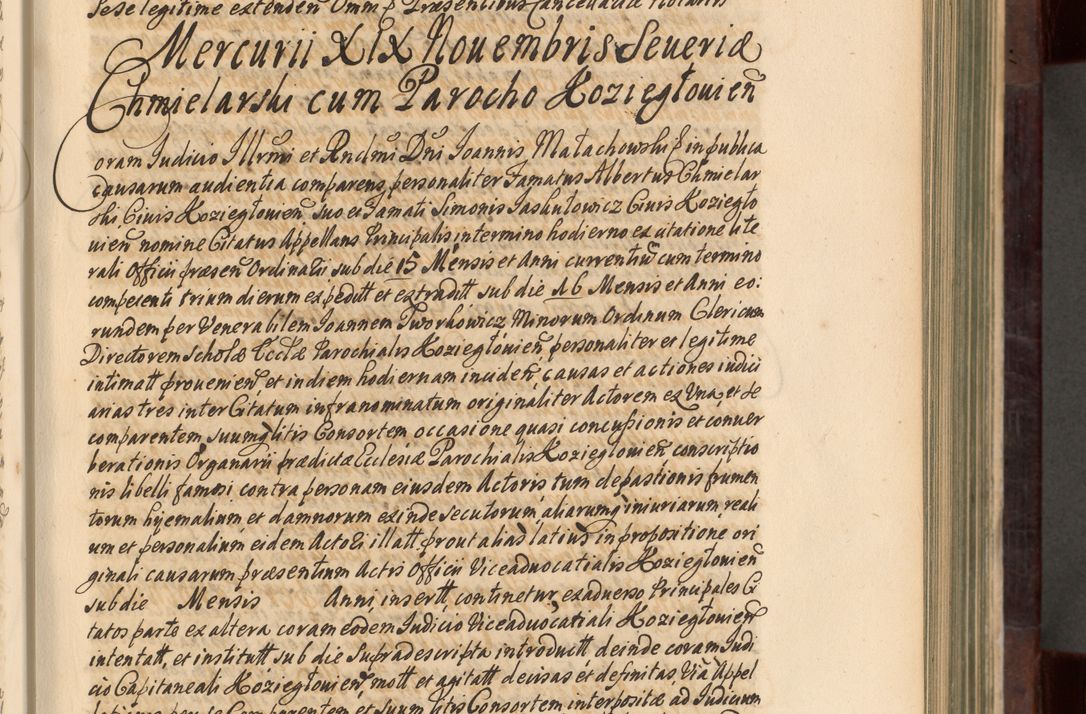 sese legitime extendeñ Omni Præsentibus Cancellariæ Notariis
Mercurii XIX Nouembris Seueriæ
Chmielarski cum Parocho Koziegłouieñ
Coram Judicio Illrmi et Rndmi Dni Joannis Małachowski &c in publica
causarum audientia comparens personaliter Famatus Albertus Chmielar
ski Ciuis Koziegłouieñ, suo et Famati Simonis Jaskułowicz Ciuis Koziegło
uieñ nomine Citatus Appellans Principalis in termino hodierno ex citatione lite
rali Officii præseñ Ordinarii sub die 15 Mensis et Anni currentiũ cum termino
competenti trium dierum expeditt et extraditt sub die 16 Mensis et Anni eo:
rundem per Venerabilem Joannem Tworkowicz Minorum Ordinum Clericum
Directorem Scholæ Ecclæ Parochialis Koziegłouieñ, personaliter et legitime
intimatt prouenieñ, et in diem hodiernam incideñ, causas et actiones iudici
arias tres inter Citatum infranominatum originaliter Actorem ex Una, et se
comparentem, suumq̃ litis Consortem occasione quasi concussionis et conuer
berationis Organarii prædictæ Ecclesiæ Parochialis Koziegłouieñ conscriptio
nis libelli famosi, contra personam eiusdem Actoris tum depastionis frumen
torum hyemalium et damnorum exinde secutorum, aliarumq̃ iniuriarum reali
um et personalium eidem Actori illatt, prout alias latius in propositione ori
ginali causarum præsentium Actis Officii Viceaduocatialis Koziegłouieñ
sub die Mensis Anni, insertt, continetur, ex aduerso Principales Ci
tatos parte ex altera coram eodem Judicio Viceaduocatiali Koziegłouieñ
intentatt, et institutt sub die supradescripta introductt deinde coram Judi
cio Capitaneali Koziegłouieñ, mott et agitatt decisas et definitas, Via Appel
lationis per se Comparentem et suum litis Consortem interpositæ ad Judicium